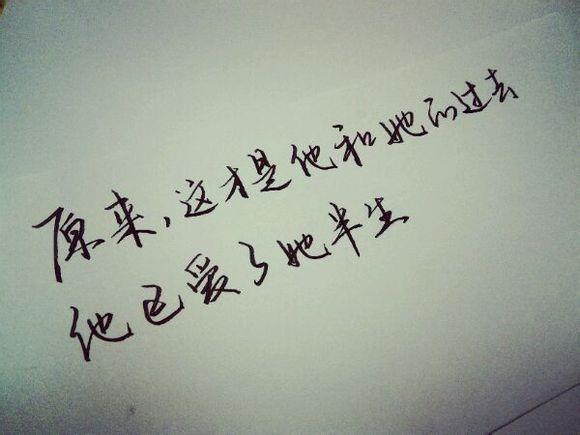 原来,这才是他和她的过去
他已爱了她半生